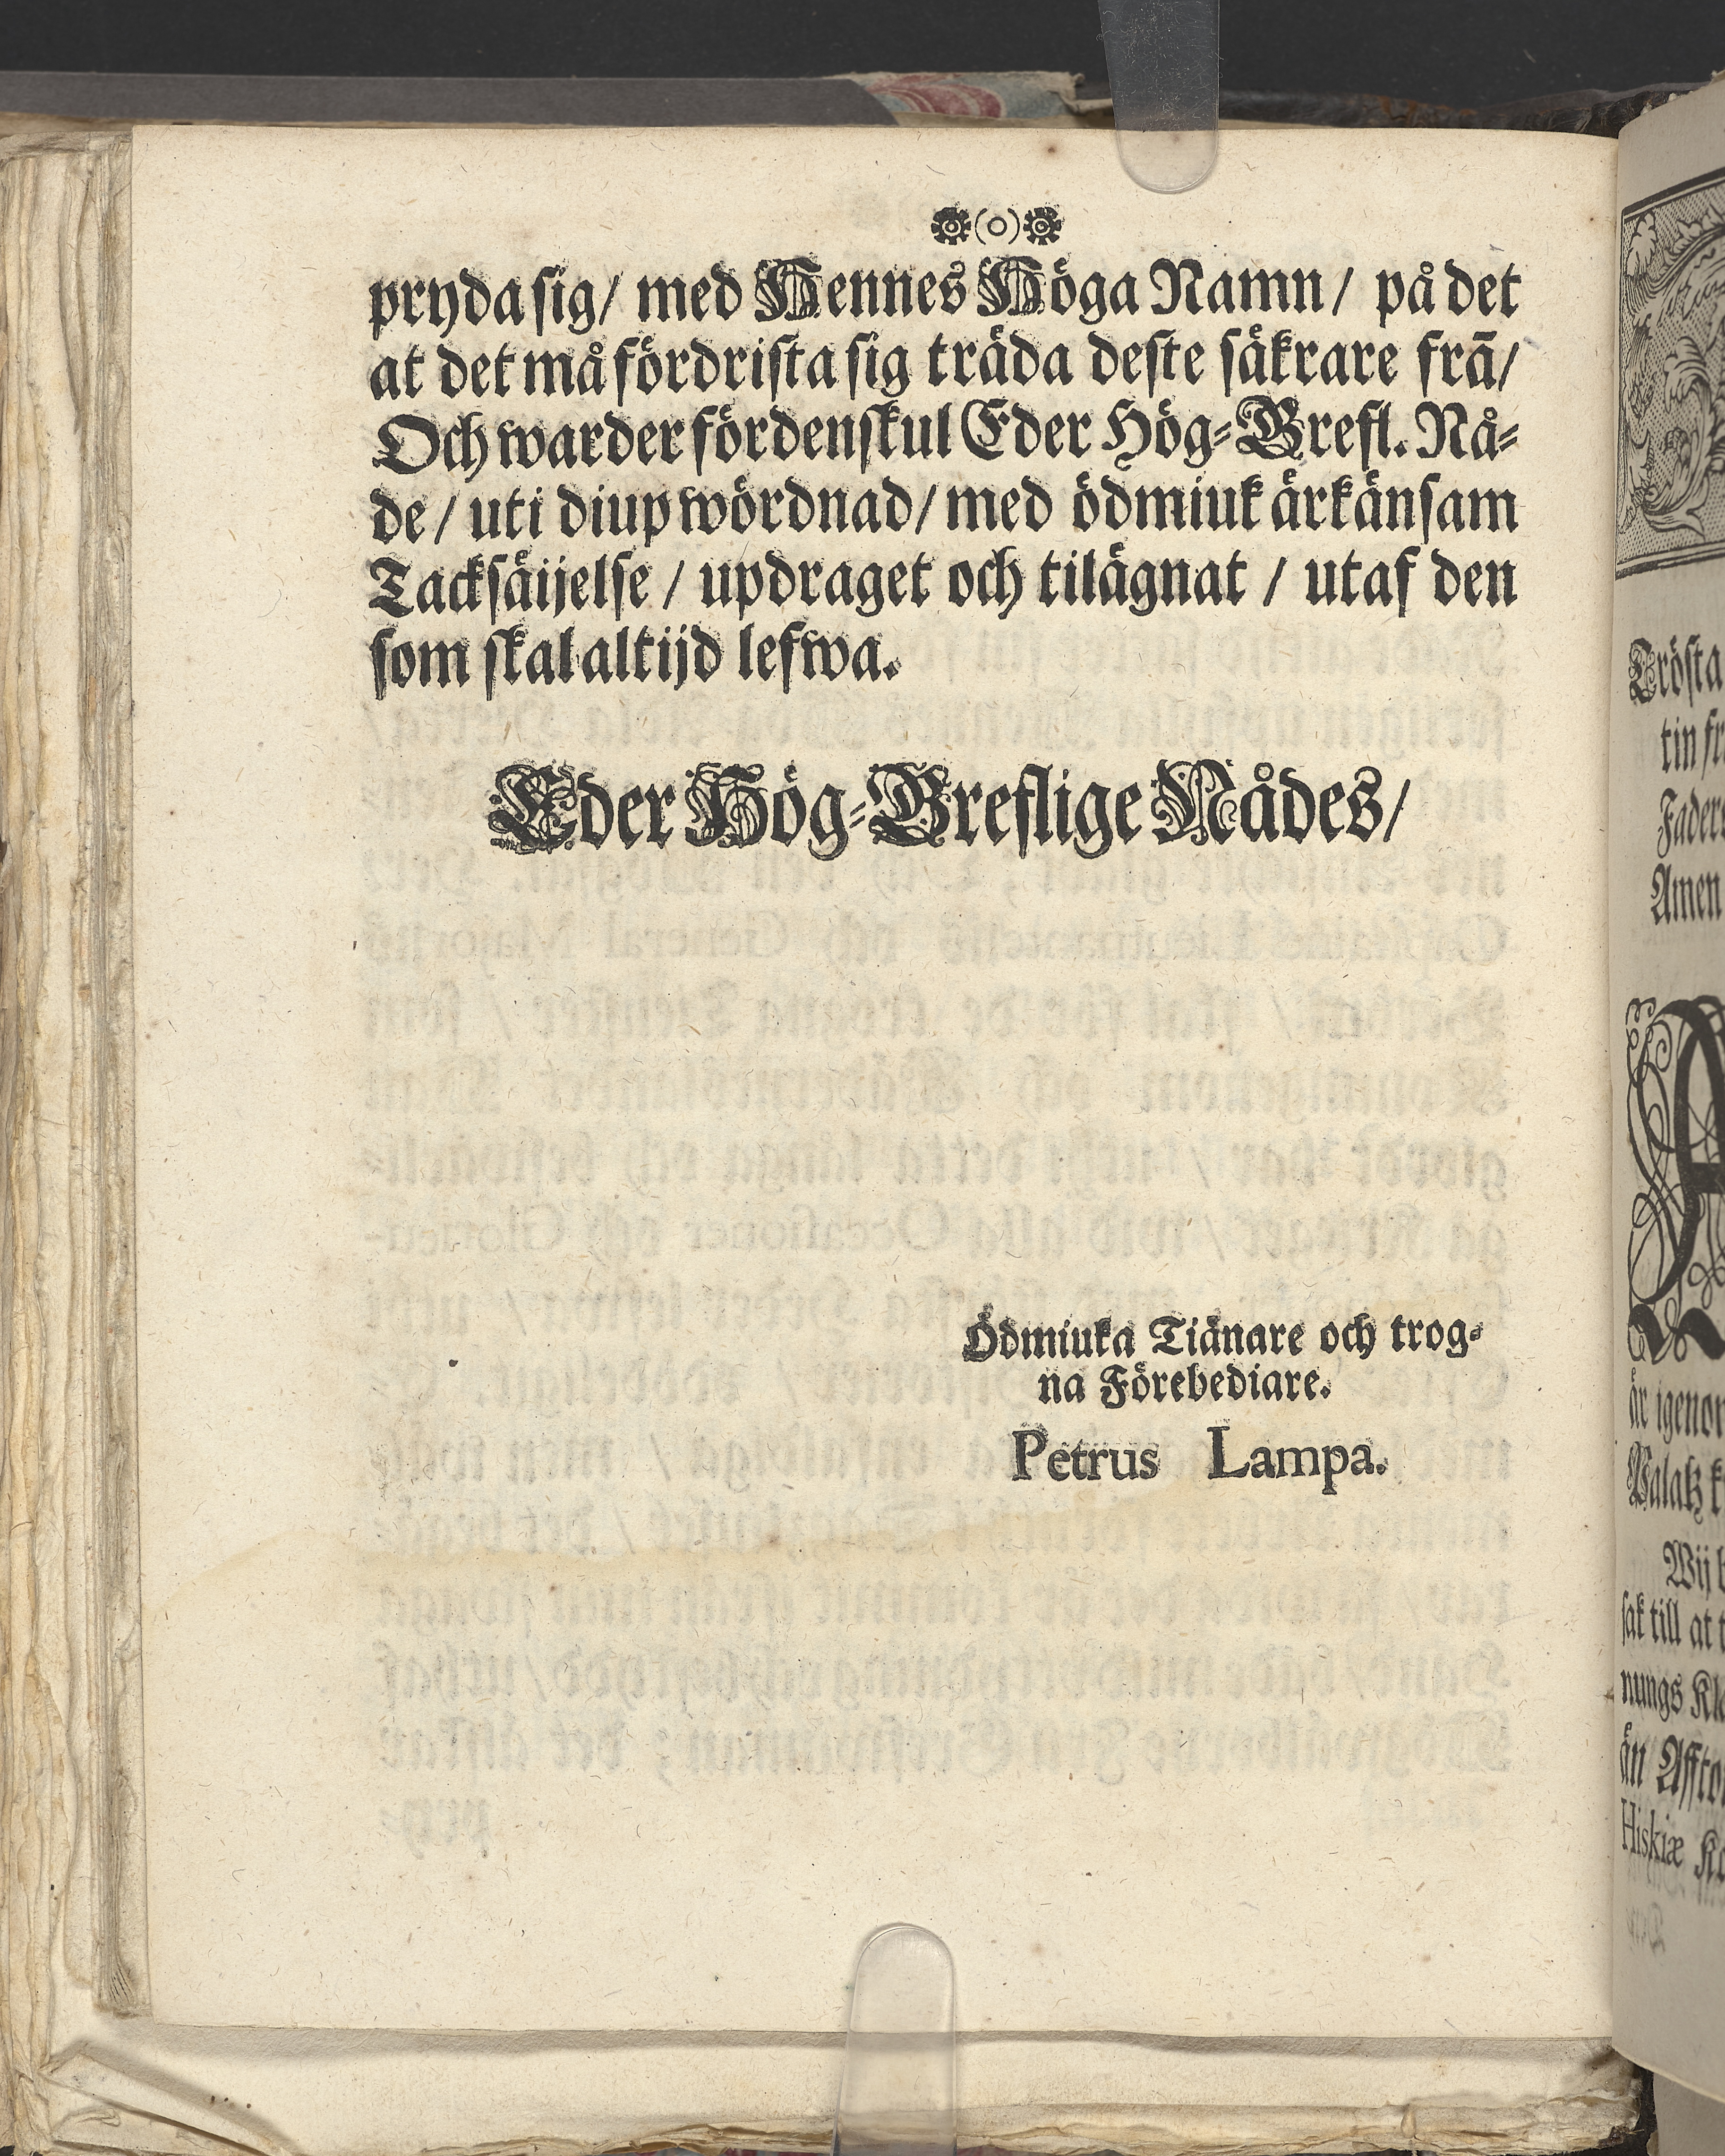 pryda sig/ med Hennes Höga Namn/ på det
at det må fördrista sig träda deste säkrare frā/
Och warder fördenskul Eder Hög-Grefl. Nå-
de/ uti diup wördnad/ med ödmiuk ärkänsam
Tacksäijelse/ updraget och tilägnat/ utaf den
som skal altijd lefwa.
Eder Hög-Greflige Nådes/
Ödmiuka Tiänare och trog-
na Förebediare.
Petrus Lampa.
Trösta
tin fr
Fader
Amen
A
är igenom
Palatz k
Wij b
sak till at t
nungs Kl
än Affto
Hiskiæ